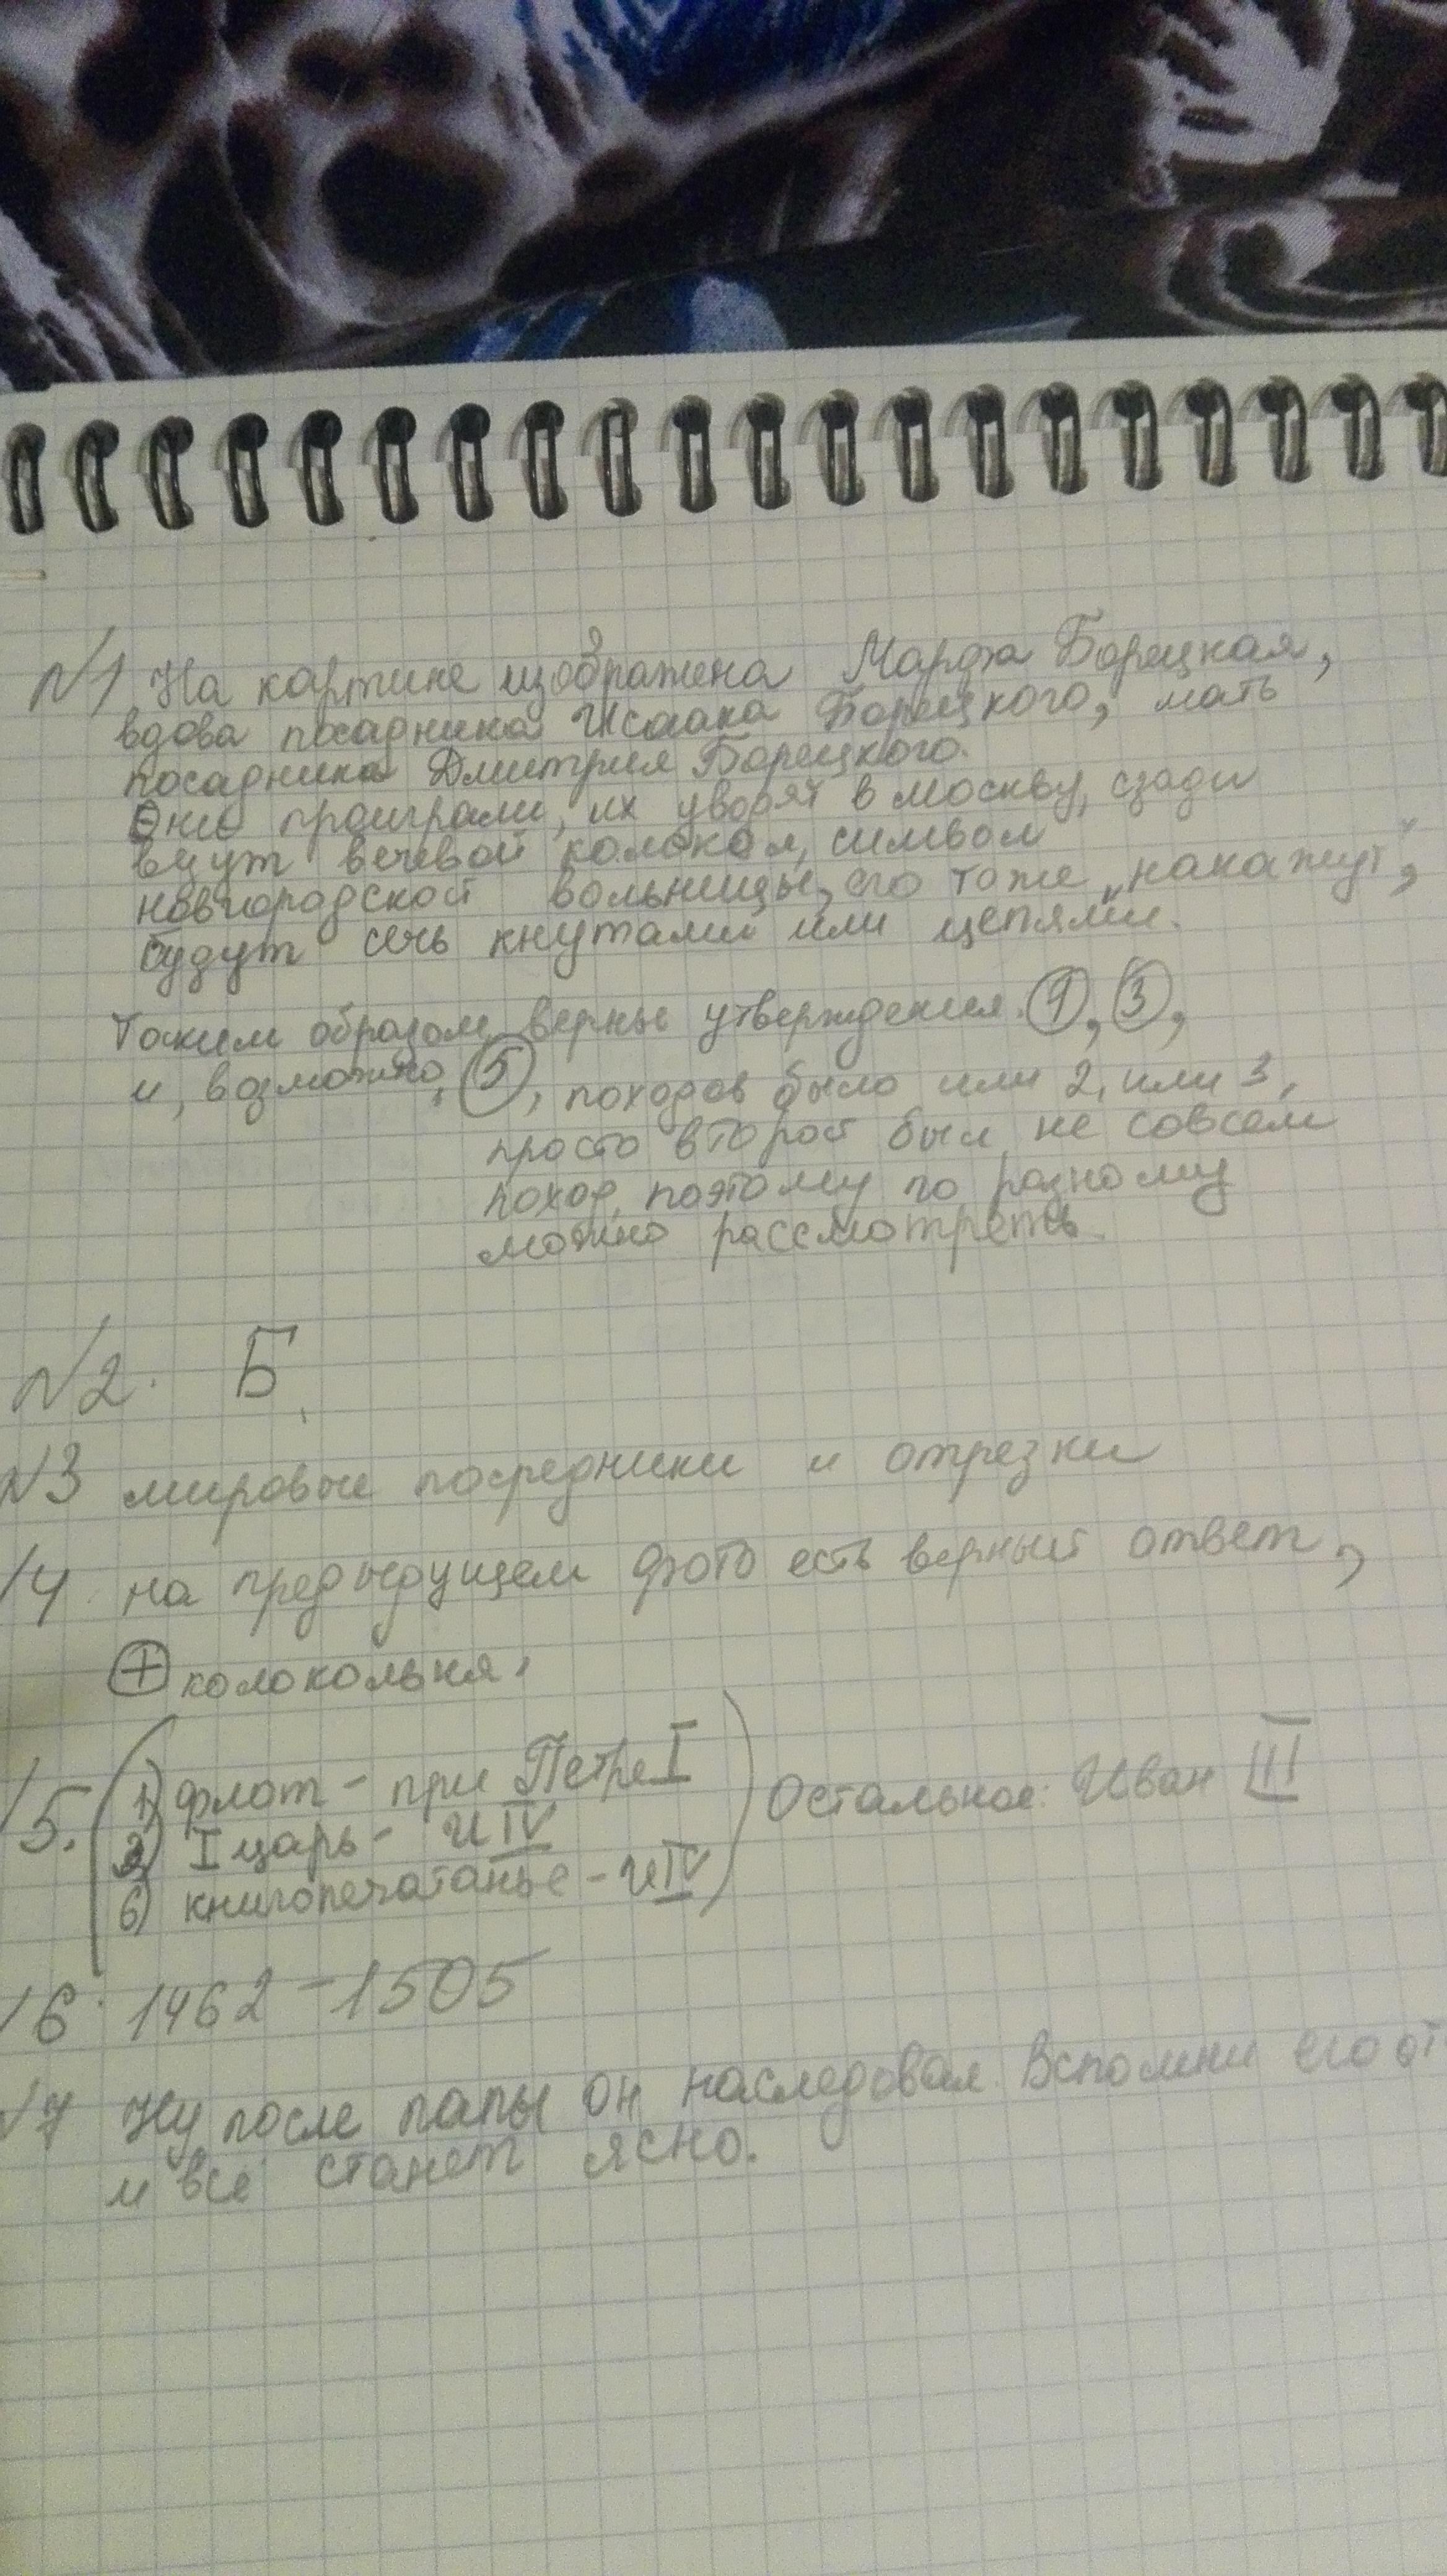 №1 На картине изображена Марфа Борецкая,
вдова посадника Исаака Борецкого, мать
посадника Дмитрия Борецкого.
Они проиграли, их увозят в Москву, сзади
везут вечевой колокол, символ
новгородской вольницы, его тоже „накажут",
будут сечь кнутами или цепями.
Таким образом, верные утверждения ①, ③,
и, возможно, ⑤, походов было или 2, или 3,
просто второй был не совсем
поход, поэтому по разному
можно рассмотреть.
№2. Б.
№3 мировые посредники и отрезки
4 на предыдущем фото есть верный ответ,
⊕ колокольня.
5. 1) флот - при Петре I
2) I царь - И IV
6) книгопечатанье - И IV
Остальное: Иван III
6 1462 - 1505
№7 Ну после папы он наследовал. Вспомни его от
и всё станет ясно.